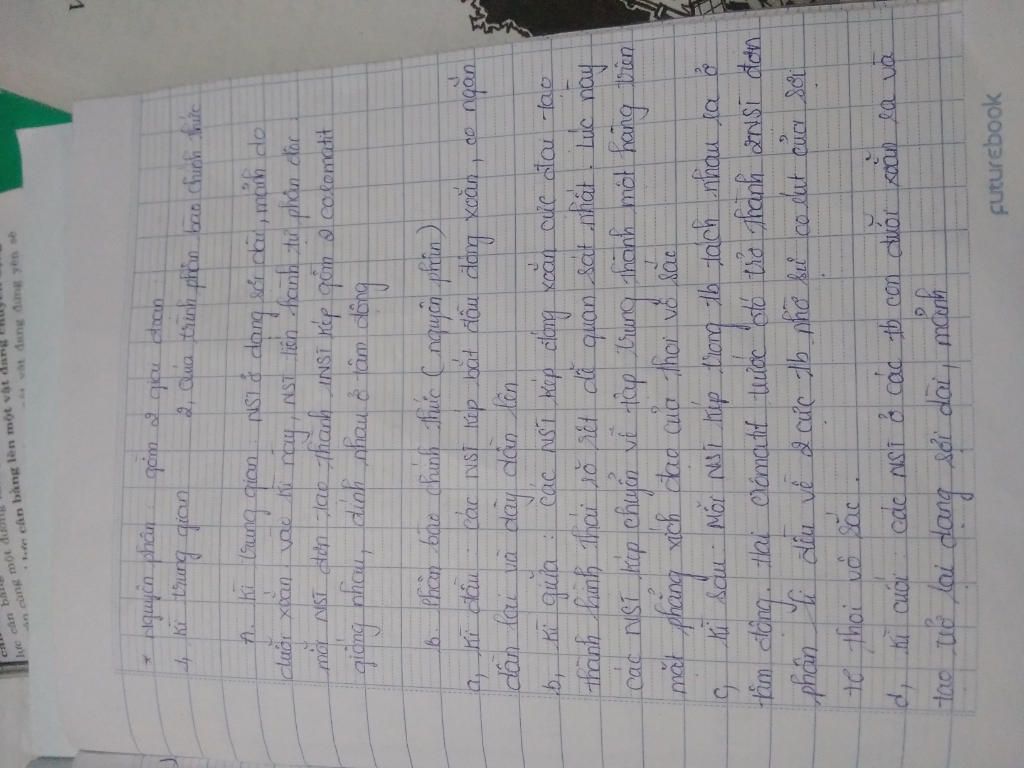 * Nguyên phân: gồm 2 giai đoạn
1, Kì trung gian 2, Quá trình phân bào chính thức
A. Kì trung gian: NST ở dạng sợi dài, mảnh do
duỗi xoắn vào kì này, NST tiến hành tự nhân đôi
mỗi NST đơn tạo thành 1NST kép gồm 2 cromatit
giống nhau, dính nhau ở tâm động
B. Phân bào chính thức (nguyên phân)
a, Kì đầu: các NST kép bắt đầu đóng xoắn, co ngắn
dần lại và dày dần lên
b, Kì giữa: các NST kép đóng xoắn cực đại tạo
thành hình thái rõ rệt dễ quan sát nhất. Lúc này
các NST kép chuyển về tập trung thành một hàng trên
mặt phẳng xích đạo của thoi vô sắc
c, Kì sau: Mỗi NST kép trong tb tách nhau ra ở
tâm động. Hai crômatit trước đó trở thành 2NST đơn
phân li đều về 2 cực tb nhờ sự co rút của sợi
tơ thoi vô sắc.
d, Kì cuối: các NST ở các tb con duỗi xoắn ra và
tạo trở lại dạng sợi dài, mảnh
futurebook